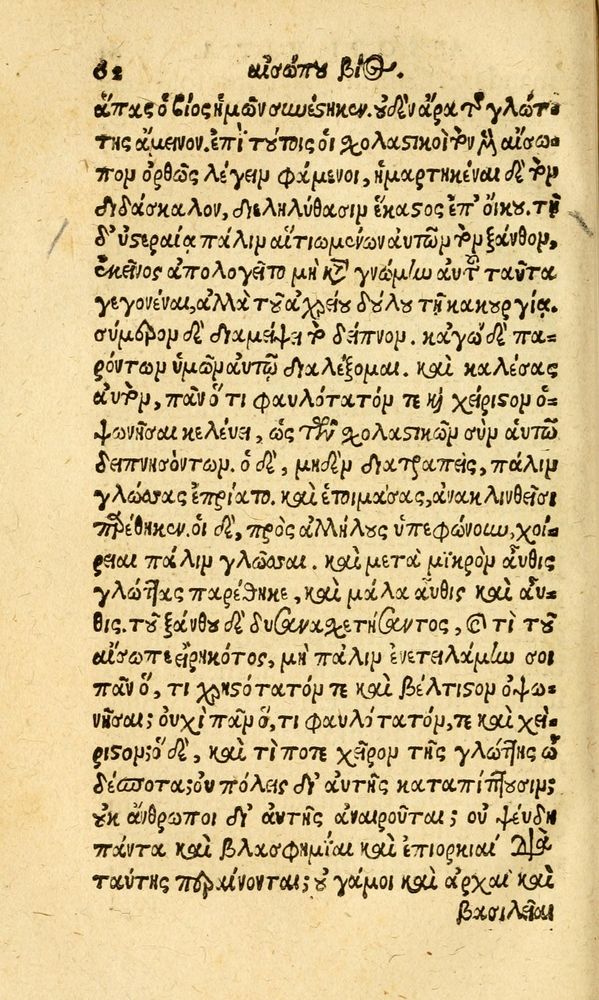 62 αἰσώπου βίος.
ἅπας ὁ βίος ἡμῶν συνέστηκεν. οὐδὲν ἄρα τῆς γλώτ-
της ἄμεινον. ἐπὶ τούτοις οἱ σχολαστικοὶ τὸν μὲν αἴσω-
πον ὀρθῶς λέγειν φάμενοι, ἡμαρτηκέναι δὲ τὸν
διδάσκαλον, διεληλύθασιν ἕκαστος ἐπ' οἴκου. τῇ
δ' ὑστεραίᾳ πάλιν αἰτιωμένων αὐτῶν τὸν ξάνθον,
ἐκεῖνος ἀπολογεῖτο μὴ κατὰ γνώμην αὐτοῦ ταῦτα
γεγονέναι, ἀλλὰ τοῦ ἀχρείου δούλου τῇ κακουργίᾳ.
σήμερον δὲ διαμείψει τὸ δεῖπνον. κἀγὼ δὲ πα-
ρόντων ὑμῶν αὐτῷ διαλέξομαι. καὶ καλέσας
αὐτὸν, πᾶν ὅ τι φαυλότατόν τε καὶ χείριστον ὀ-
ψωνῆσαι κελεύει, ὡς τῶν σχολαστικῶν σὺν αὐτῷ
δειπνησόντων. ὁ δὲ, μηδὲν διατραπεὶς, πάλιν
γλώσσας ἐπρίατο. καὶ ἑτοιμάσας, ἀνακλινθεῖσι
προέθηκεν. οἱ δὲ, πρὸς ἀλλήλους ὑπεφώνουν, χοί-
ρειαι πάλιν γλῶσσαι. καὶ μετὰ μικρὸν αὖθις
γλώττας παρέθηκε, καὶ μάλα αὖθις καὶ αὖ-
θις. τοῦ ξάνθου δὲ δυσανασχετήσαντος, καὶ τί τοῦ
αἴσωπε εἰρηκότος, μὴ πάλιν ἐνετειλάμην σοι
πᾶν ὅ, τι χρηστότατόν τε καὶ βέλτιστον ὀψω-
νῆσαι; οὐχὶ πᾶν ὅ, τι φαυλότατόν, τε καὶ χεί-
ριστον; ὁ δὲ, καὶ τί ποτε χεῖρον τῆς γλώττης ὦ
δέσποτα; οὐ πόλεις δι' αὐτῆς καταπίπτουσιν;
οὐκ ἄνθρωποι δι' αὐτῆς ἀναιροῦται; οὐ ψεύδη
πάντα καὶ βλασφημίαι καὶ ἐπιορκίαι διὰ
ταύτης περαίνονται; οὐ γάμοι καὶ ἀρχαὶ καὶ
βασιλεῖαι